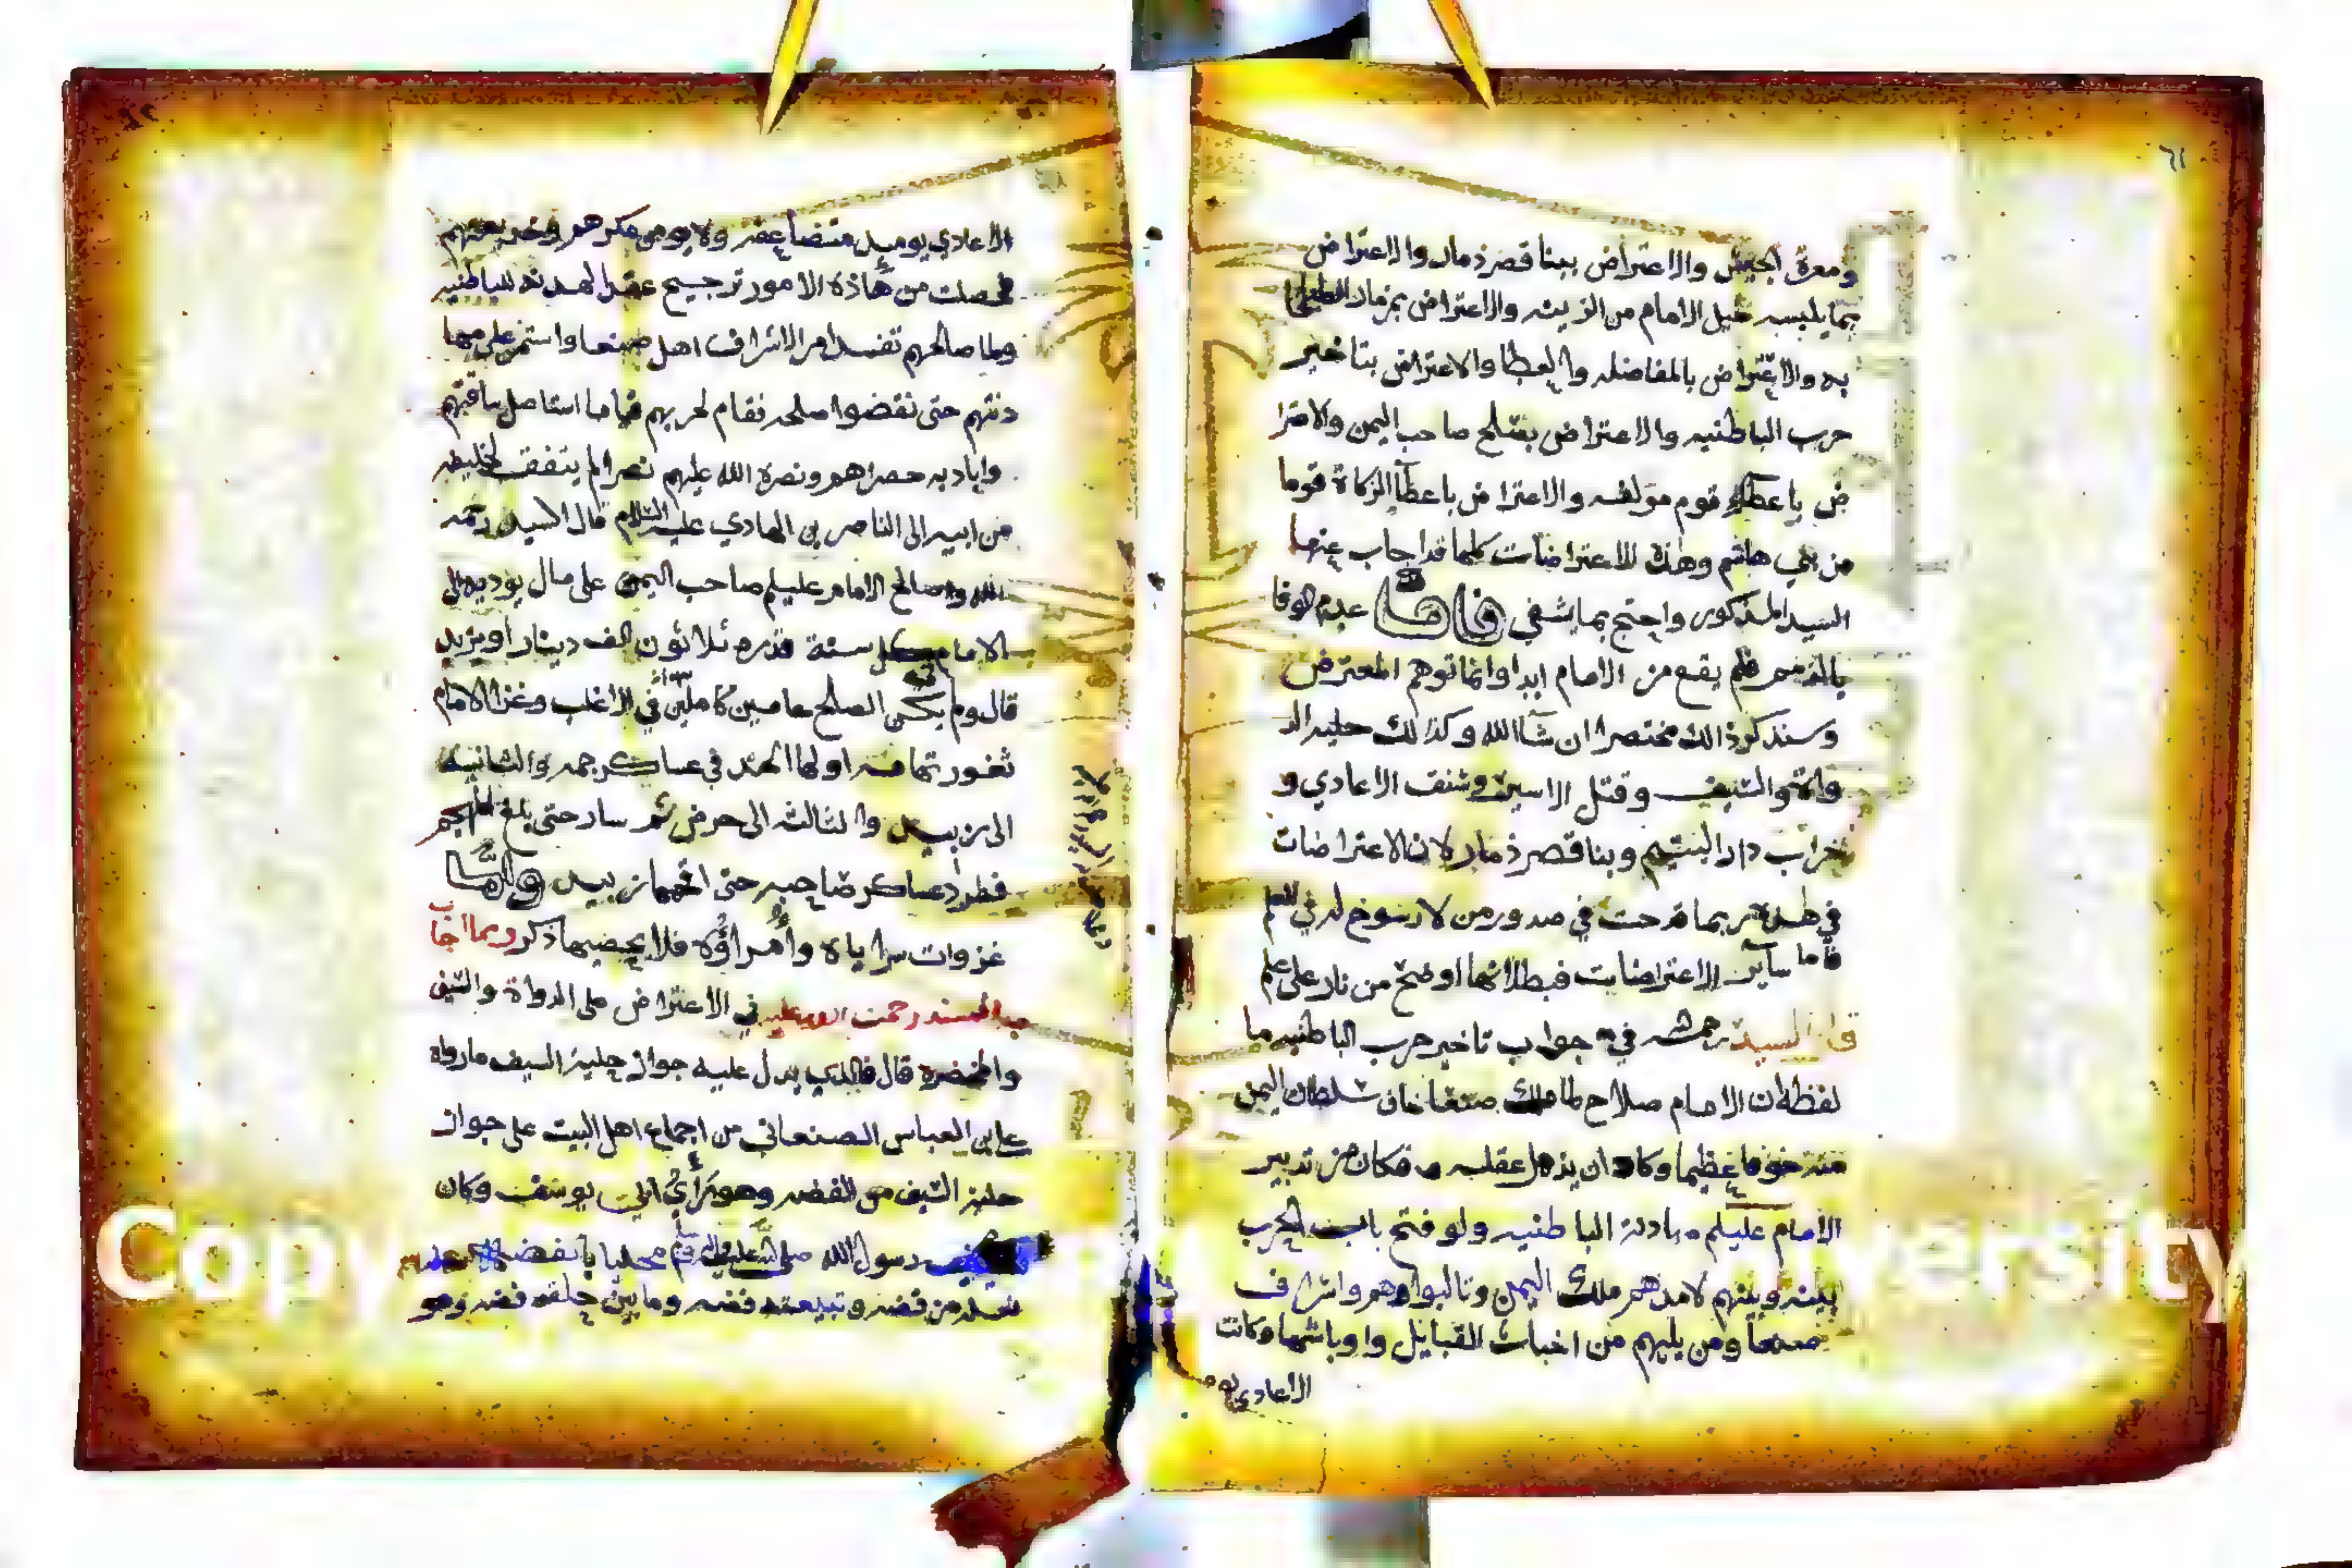 ٦١
ومعرة الجيش والاعتراض ببنا قصر ذمار والاعتراض
بما يلبسه خيل الامام من الزينه والاعتراض بمزمار
به والاعتراض بالمفاضله والعطا والاعتراض بتاخير
حرب الباطنيه والاعتراض بصلح صاحب اليمن والاعترا
ض باعطاء قوم مولفه والاعتراض باعطا الزكاة قوما
من بني هاشم وهذه الاعتراضات كلها قد اجاب عنها
السيد المذكور واحتج بما يشفي فاما عدم الوفا
بالذمم فلم يقع من الامام ابدا وانما توهم المعترض
وسنذكر ذالك مختصرا ان شا الله وكذلك حليه الد
واة والسيف وقتل الاسير وشنف الاعادي و
خراب دار اليتيم وبنا قصر ذمار لان الاعتراضات
في هذه ربما قدحت في صدور من لا رسوخ له في العلم
فاما ساير الاعتراضات فبطلانها اوضح من نار على علم
قال السيد رحمه الله في جواب تاخير حرب الباطنيه ما
لفظه ان الامام صلاح لما ملك صنعا خاف سلطان اليمن
منه خوفا عظيما وكاد ان يذهل عقله فكان من تدبير
الامام عليلم مهادنة الباطنيه ولو فتح باب الحرب
بينه وبينهم لامدهم ملك اليمن وتالبوا وهم واشراف
صنعا ومن يليهم من اخباث القبايل واوباشها وكانت
الاعادي
٦٢
الاعادي يوميد متضاعفه ولا يومن مكرهم
فحصلت من هاذه الامور ترجيح عقد الهدنه للباطنيه
ولما صالحهم تفسد امر الاشراف اهل صنعا واستمر على مها
دنتهم حتى نقضوا صلحه فقام لحربهم قياما استاصل شافتهم
واباد به خضراهم ونصره الله عليهم نصرا لم يتفق لخليفه
من ابيه الى الناصر بن الهادي عليه السلام قال السيد رحمه
الله وصالح الامام عليلم صاحب اليمن على مال يوديه الى
الامام كل سنة قدره ثلاثون الف دينار او يزيد
قال ولم يكن الصلح عامين كاملين في الاغلب وغزا الامام
ثغور تهامه اولها المهد في عساكر جمه والثانيه
الى زبيد والثالثه الى حرض ثم سار حتى بلغ
فطرد عساكر صاحبه حتى اقحمها زبيد واما
غزوات سراياه وامراؤه فلا يحصيها ذكر ومما اجاب
به السيد رحمت الله عليه في الاعتراض على الدواة والسيف
والخضره قال فالذي يدل عليه جواز حلية السيف ما رواه
علي بن العباس الصنعاني من اجماع اهل البيت على جواز
حلية السيف من الفضه وهو راي ابي يوسف وكان
سيف رسول الله صلى الله عليه واله وسلم محلا بالفضه
نعله من فضه وقبيعته فضه وما بين حلقه فضه وهو